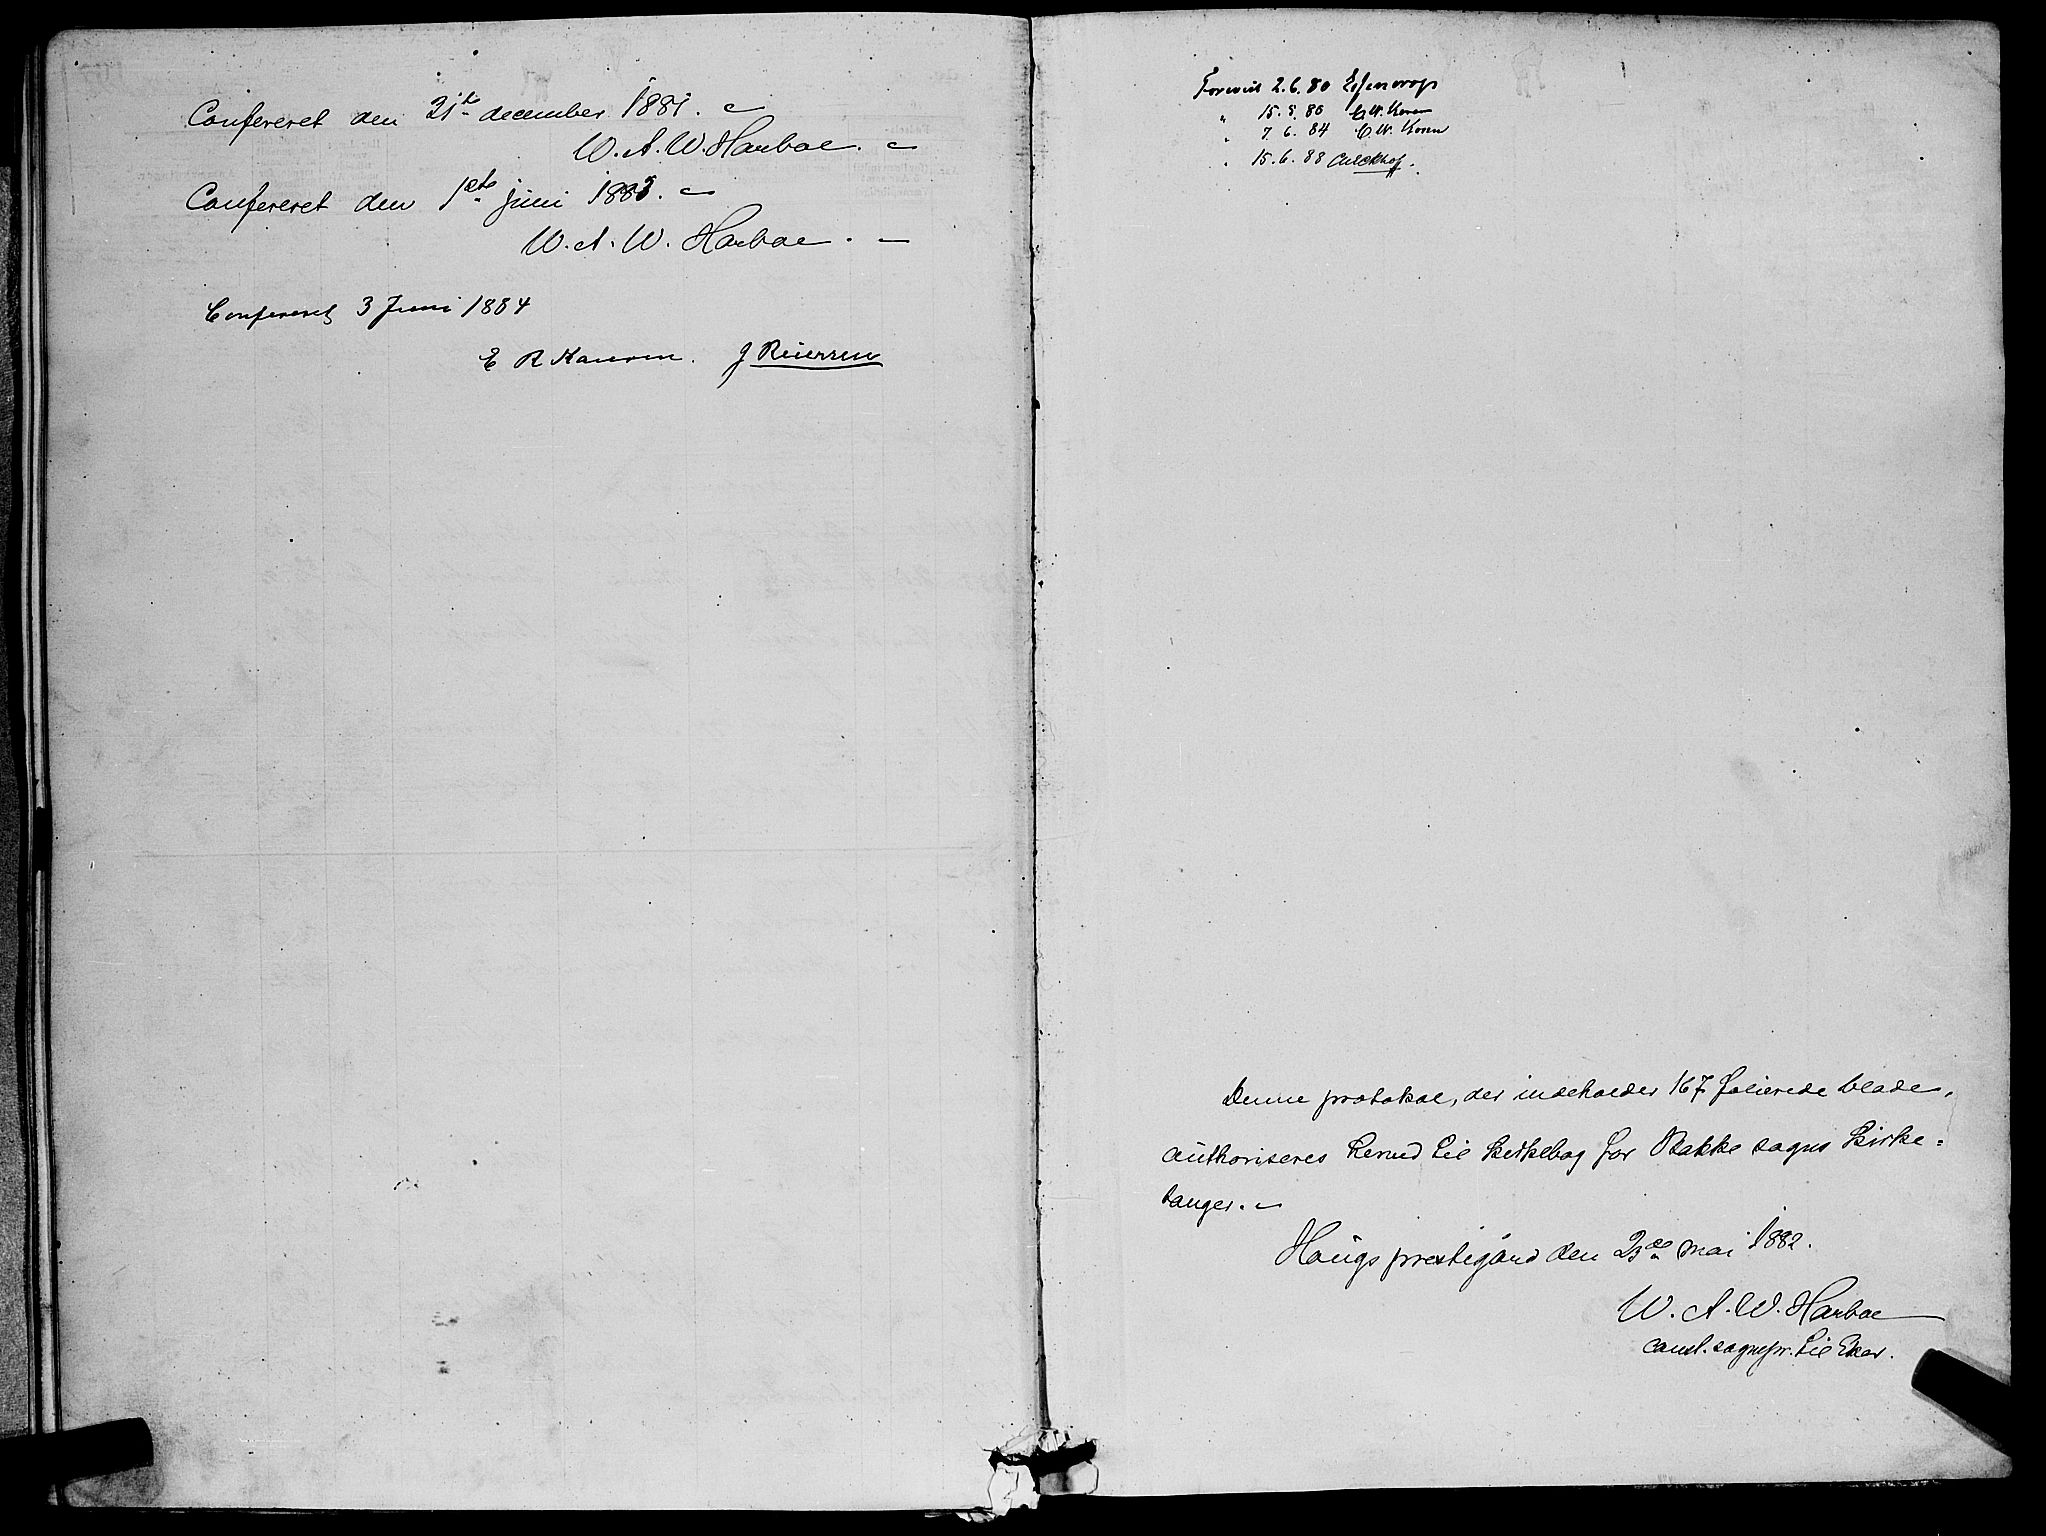 Confereret den 31te december 1881.
W. A. W. Harboe.
Confereret den 1ste juni 1883.
W. A. W. Harboe.
Confereret 3 Juni 1884
E R Hansen. J Reiersen
Forevist 2.6.80 Essendrop
" 15.8.80 C. W. Koren
" 7.6.84 C. W. Koren
" 15.6.88
Denne protokol, der indeholder 167 folierede blade,
authoriseres herved til kirkebog for Bakke sogns kirke=
sanger.
Haugs prestegård den 23de mai 1882.
W. A. W. Harboe
const. sognepr. til Eker.